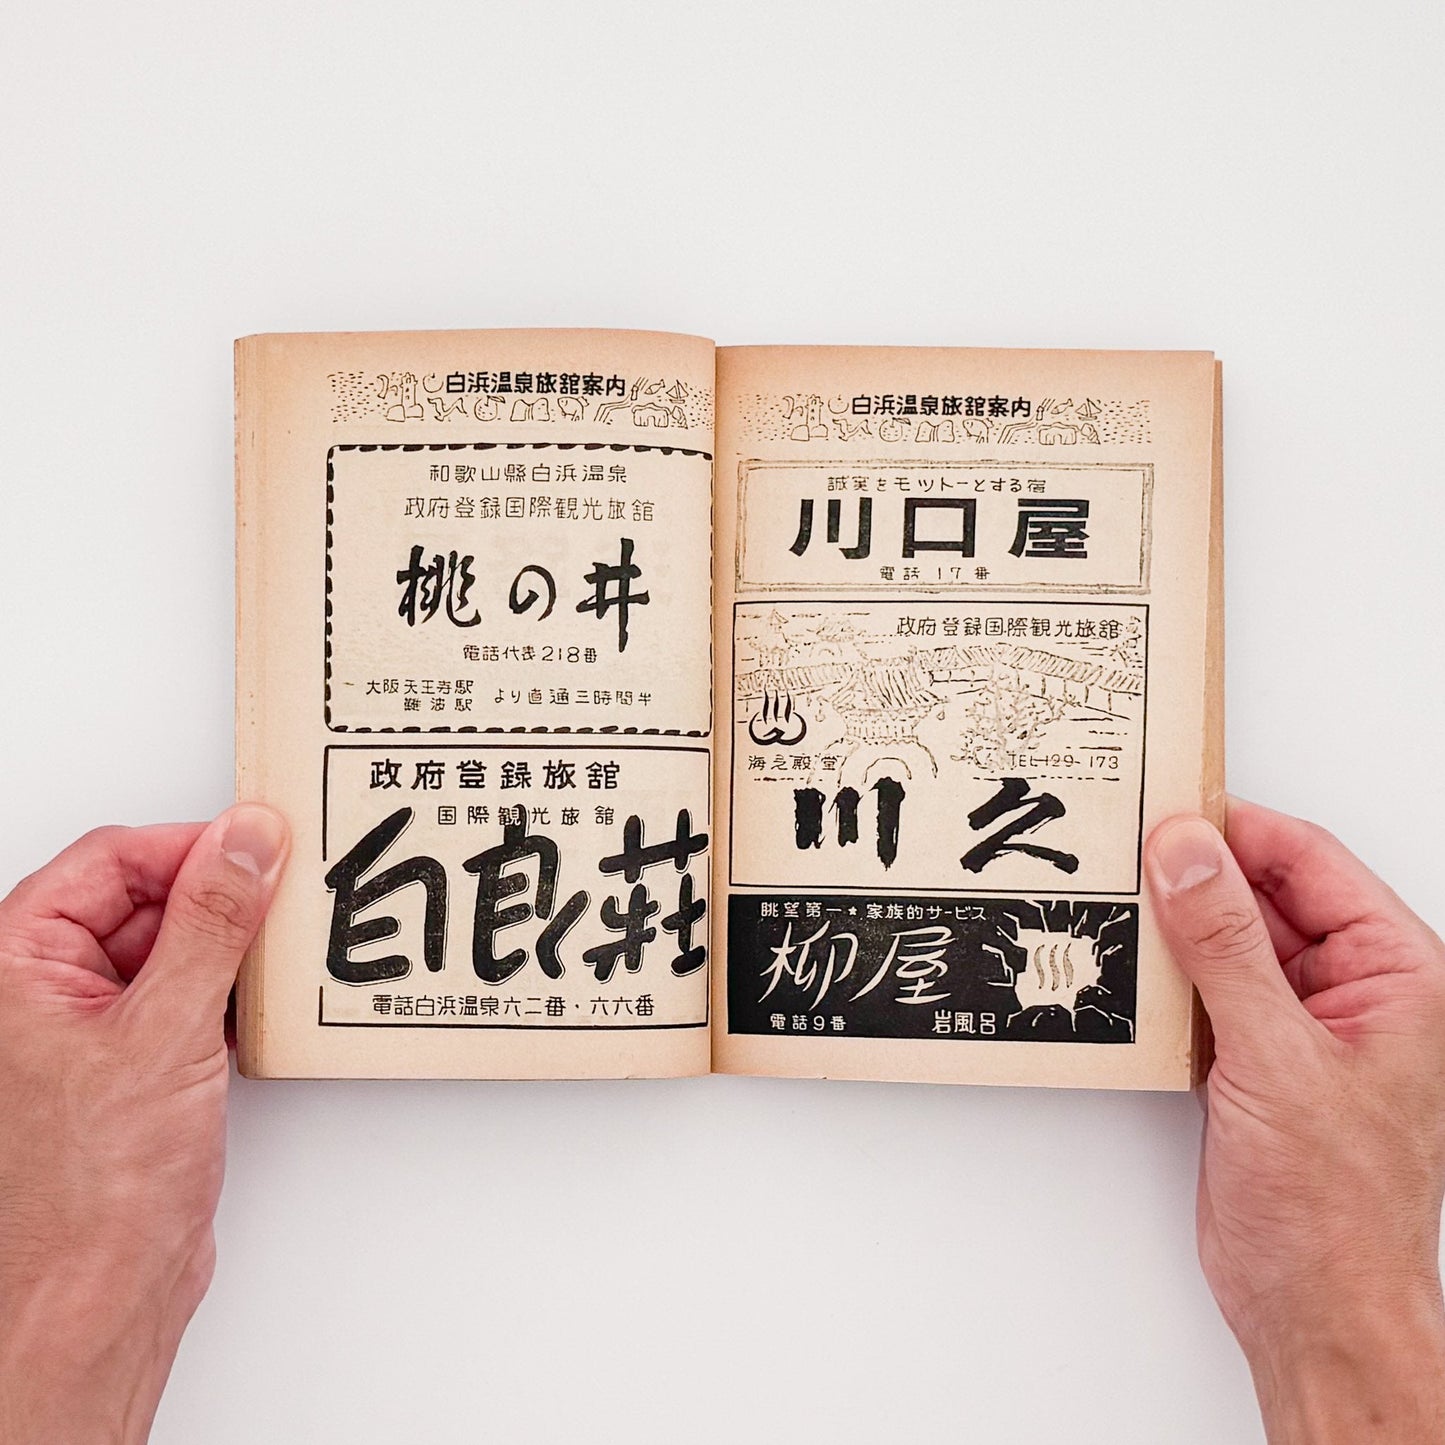 白浜温泉旅舘案内
和歌山縣白浜温泉
政府登録国際観光旅舘
桃の井
電話代表218番
大阪天王寺駅
難波駅
より直通三時間半
政府登録旅舘
国際観光旅舘
白良荘
電話白浜温泉六二番・六六番
白浜温泉旅舘案内
誠実をモットーとする宿
川口屋
電話17番
政府登録国際観光旅舘
海之殿堂
TEL 129-173
川久
眺望第一★家族的サービス
柳屋
電話9番
岩風呂